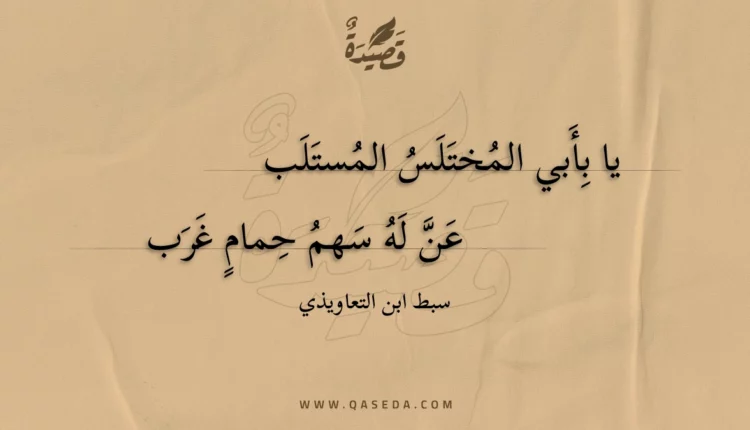 قَصِيدَةٌ
يا بِأَبي المُختَلَسُ المُستَلَب
عَنَّ لَهُ سَهمُ حِمامٍ غَرَب
سبط ابن التعاويذي
WWW.QASEDA.COM